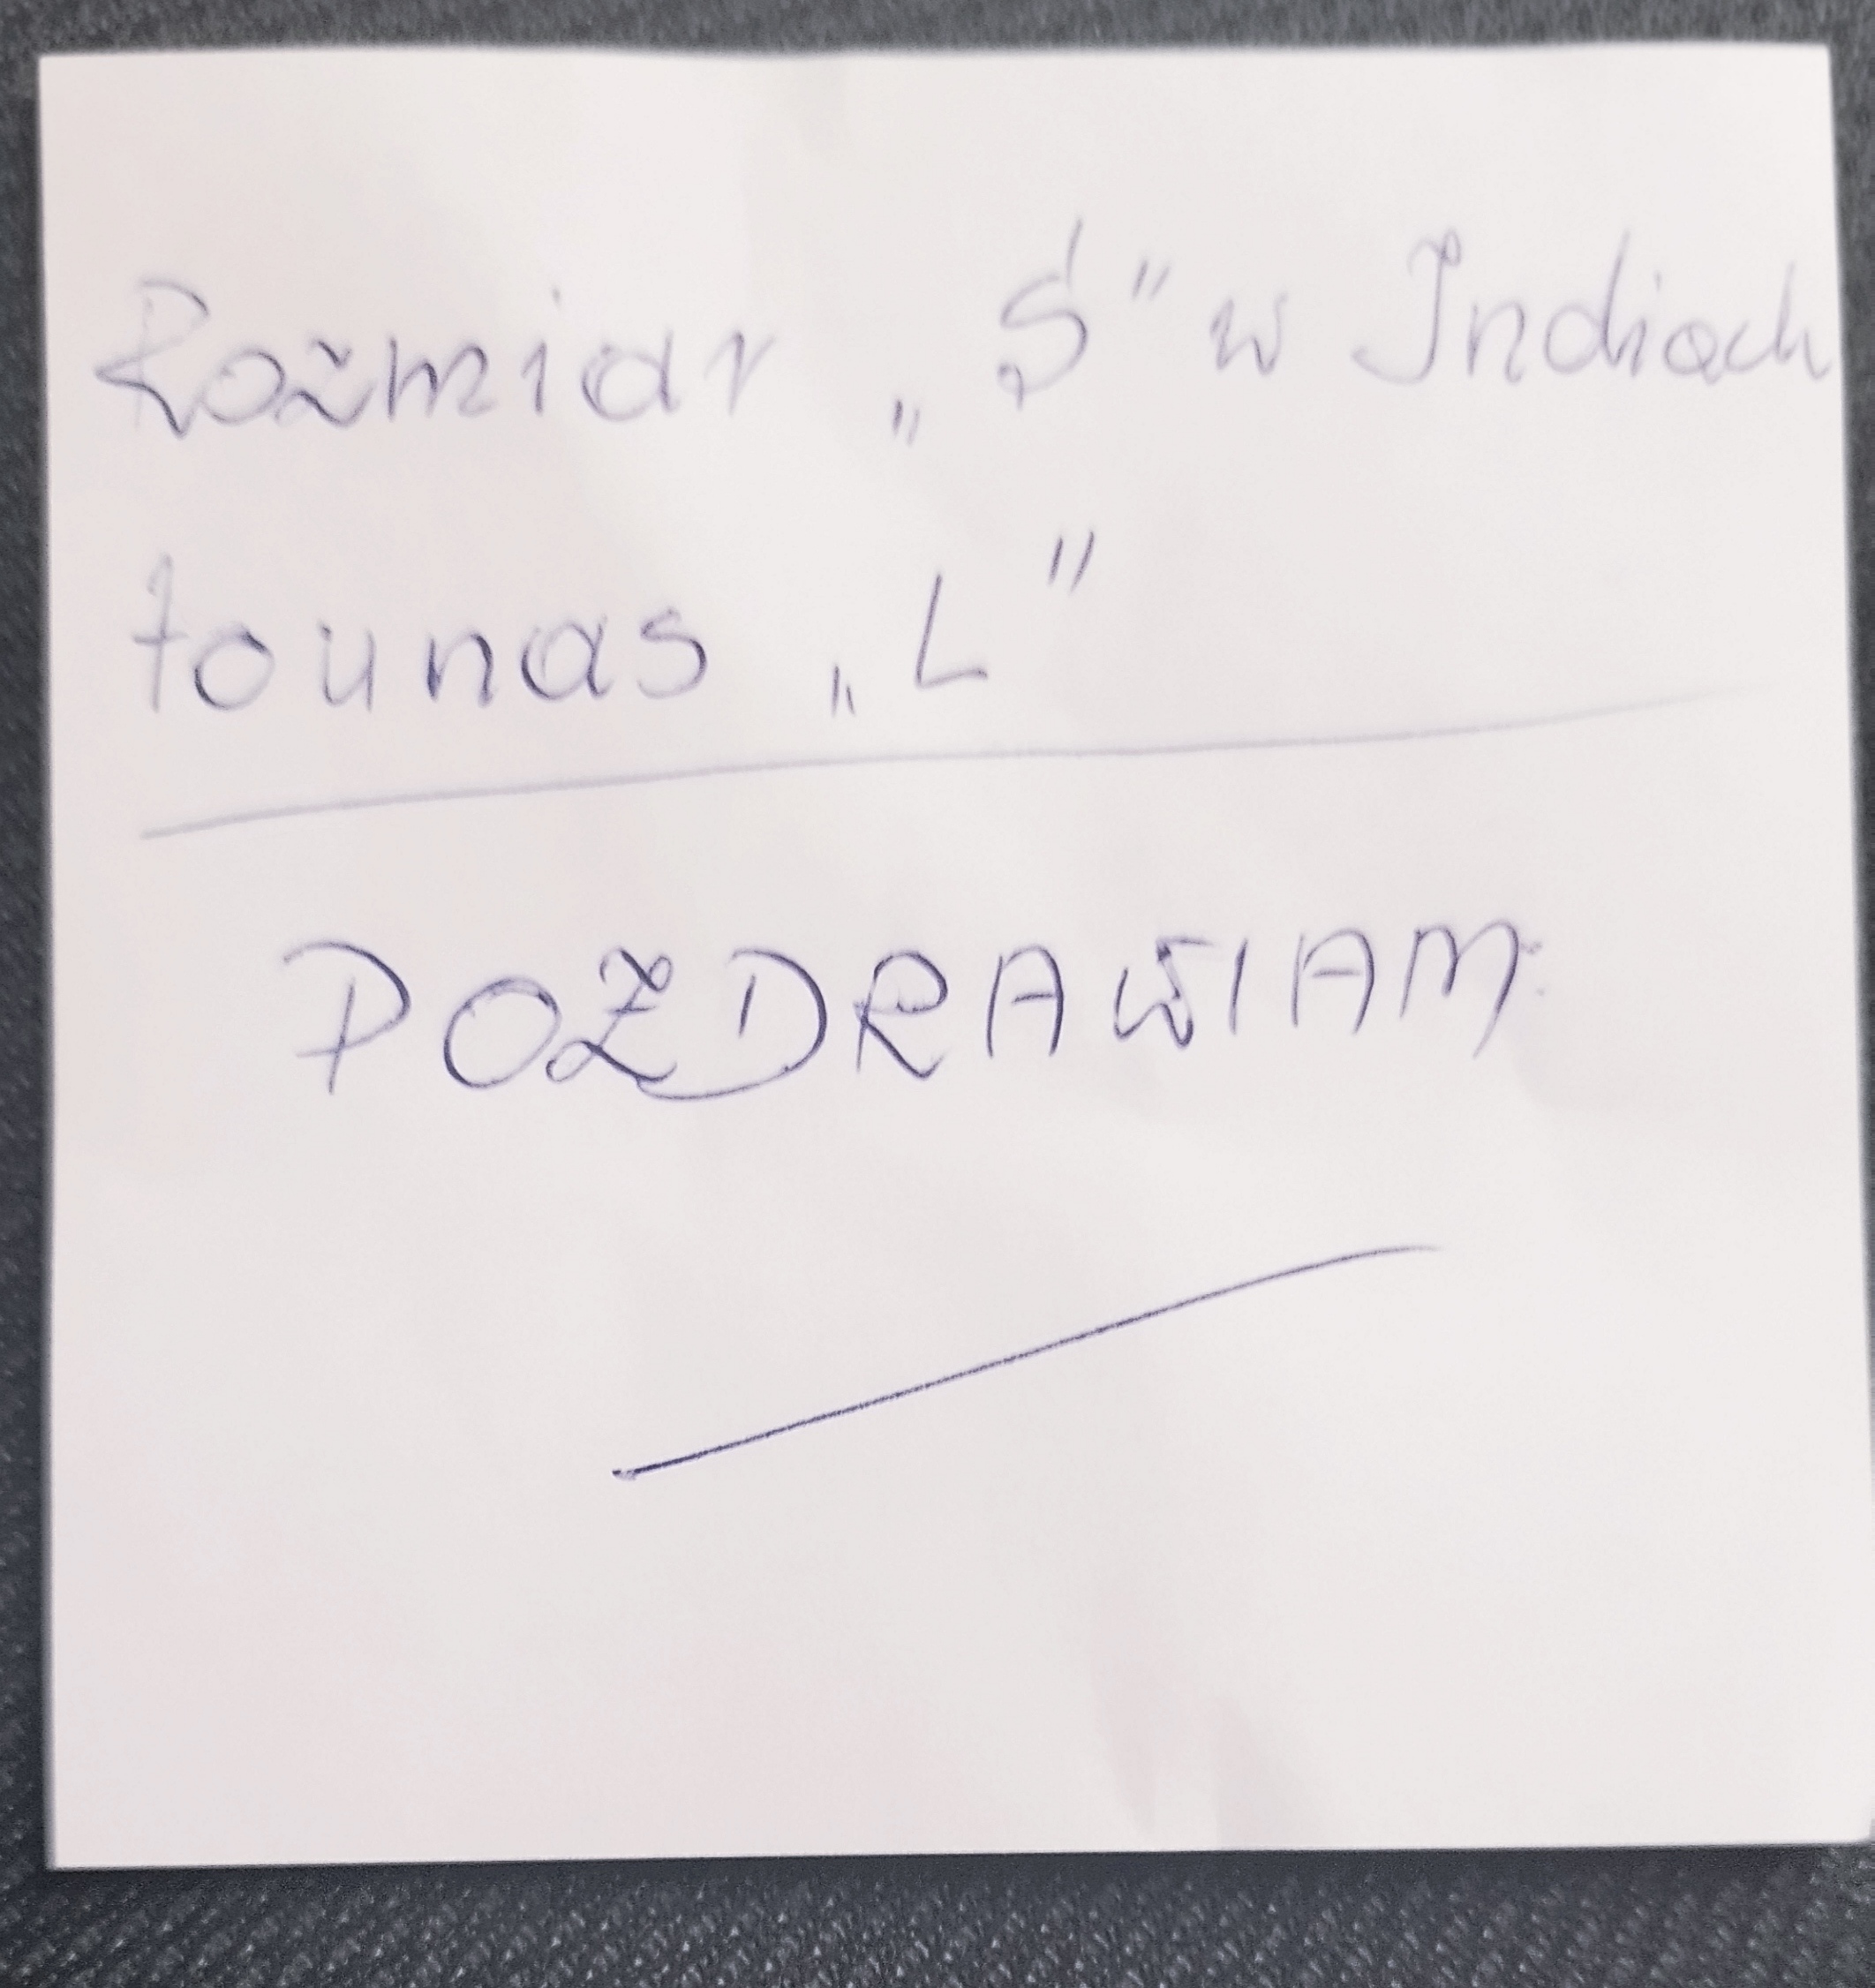 Rozmiar „S" w Indiach
to u nas „L"
POZDRAWIAM